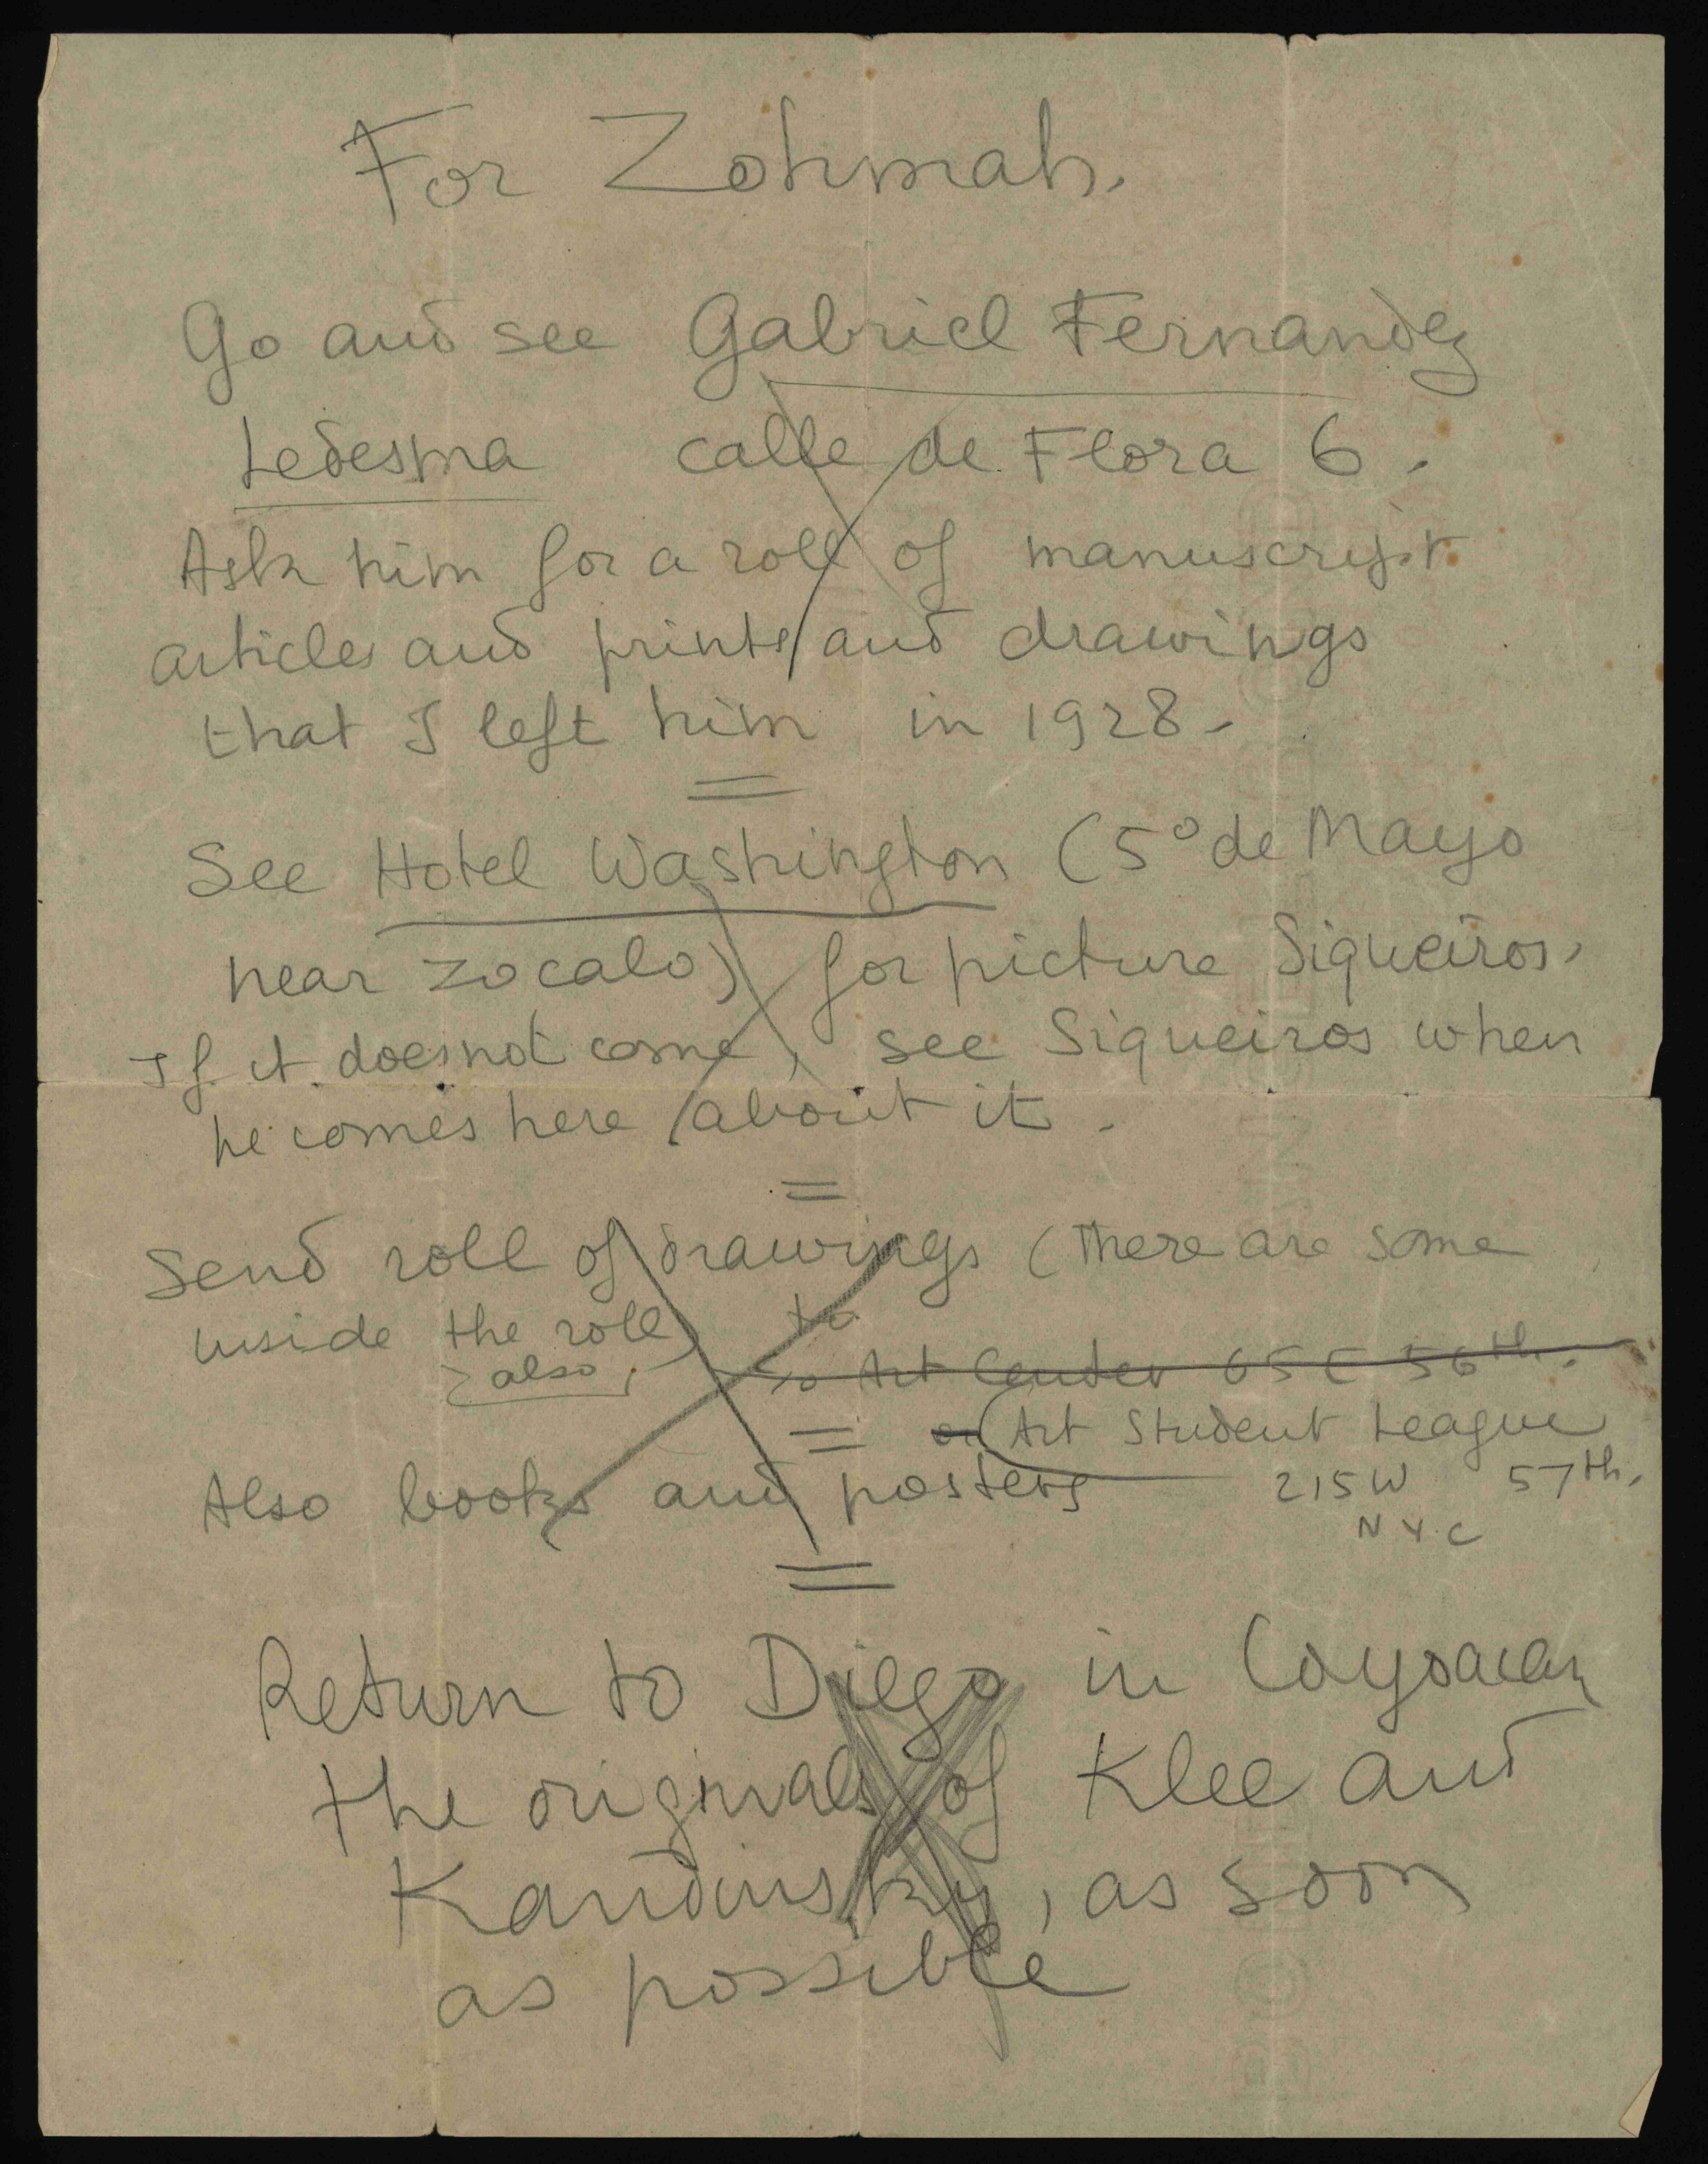 For Zohmah.
Go and see Gabriel Fernandez
Ledesma calle de Flora 6.
Ask him for a roll of manuscript
articles and prints and drawings
that I left him in 1928.
See Hotel Washington (5º de Mayo
near zocalo) for picture Siqueiros.
If it does not come, see Siqueiros when
he comes here about it.
Send roll of drawings (there are some
inside the roll) to
also
to Art Center 65 E 56th.
or Art Student League
Also books and posters 215 W 57th.
NYC
Return to Diego in Coyoacan
the originals of Klee and
Kandinsky, as soon
as possible